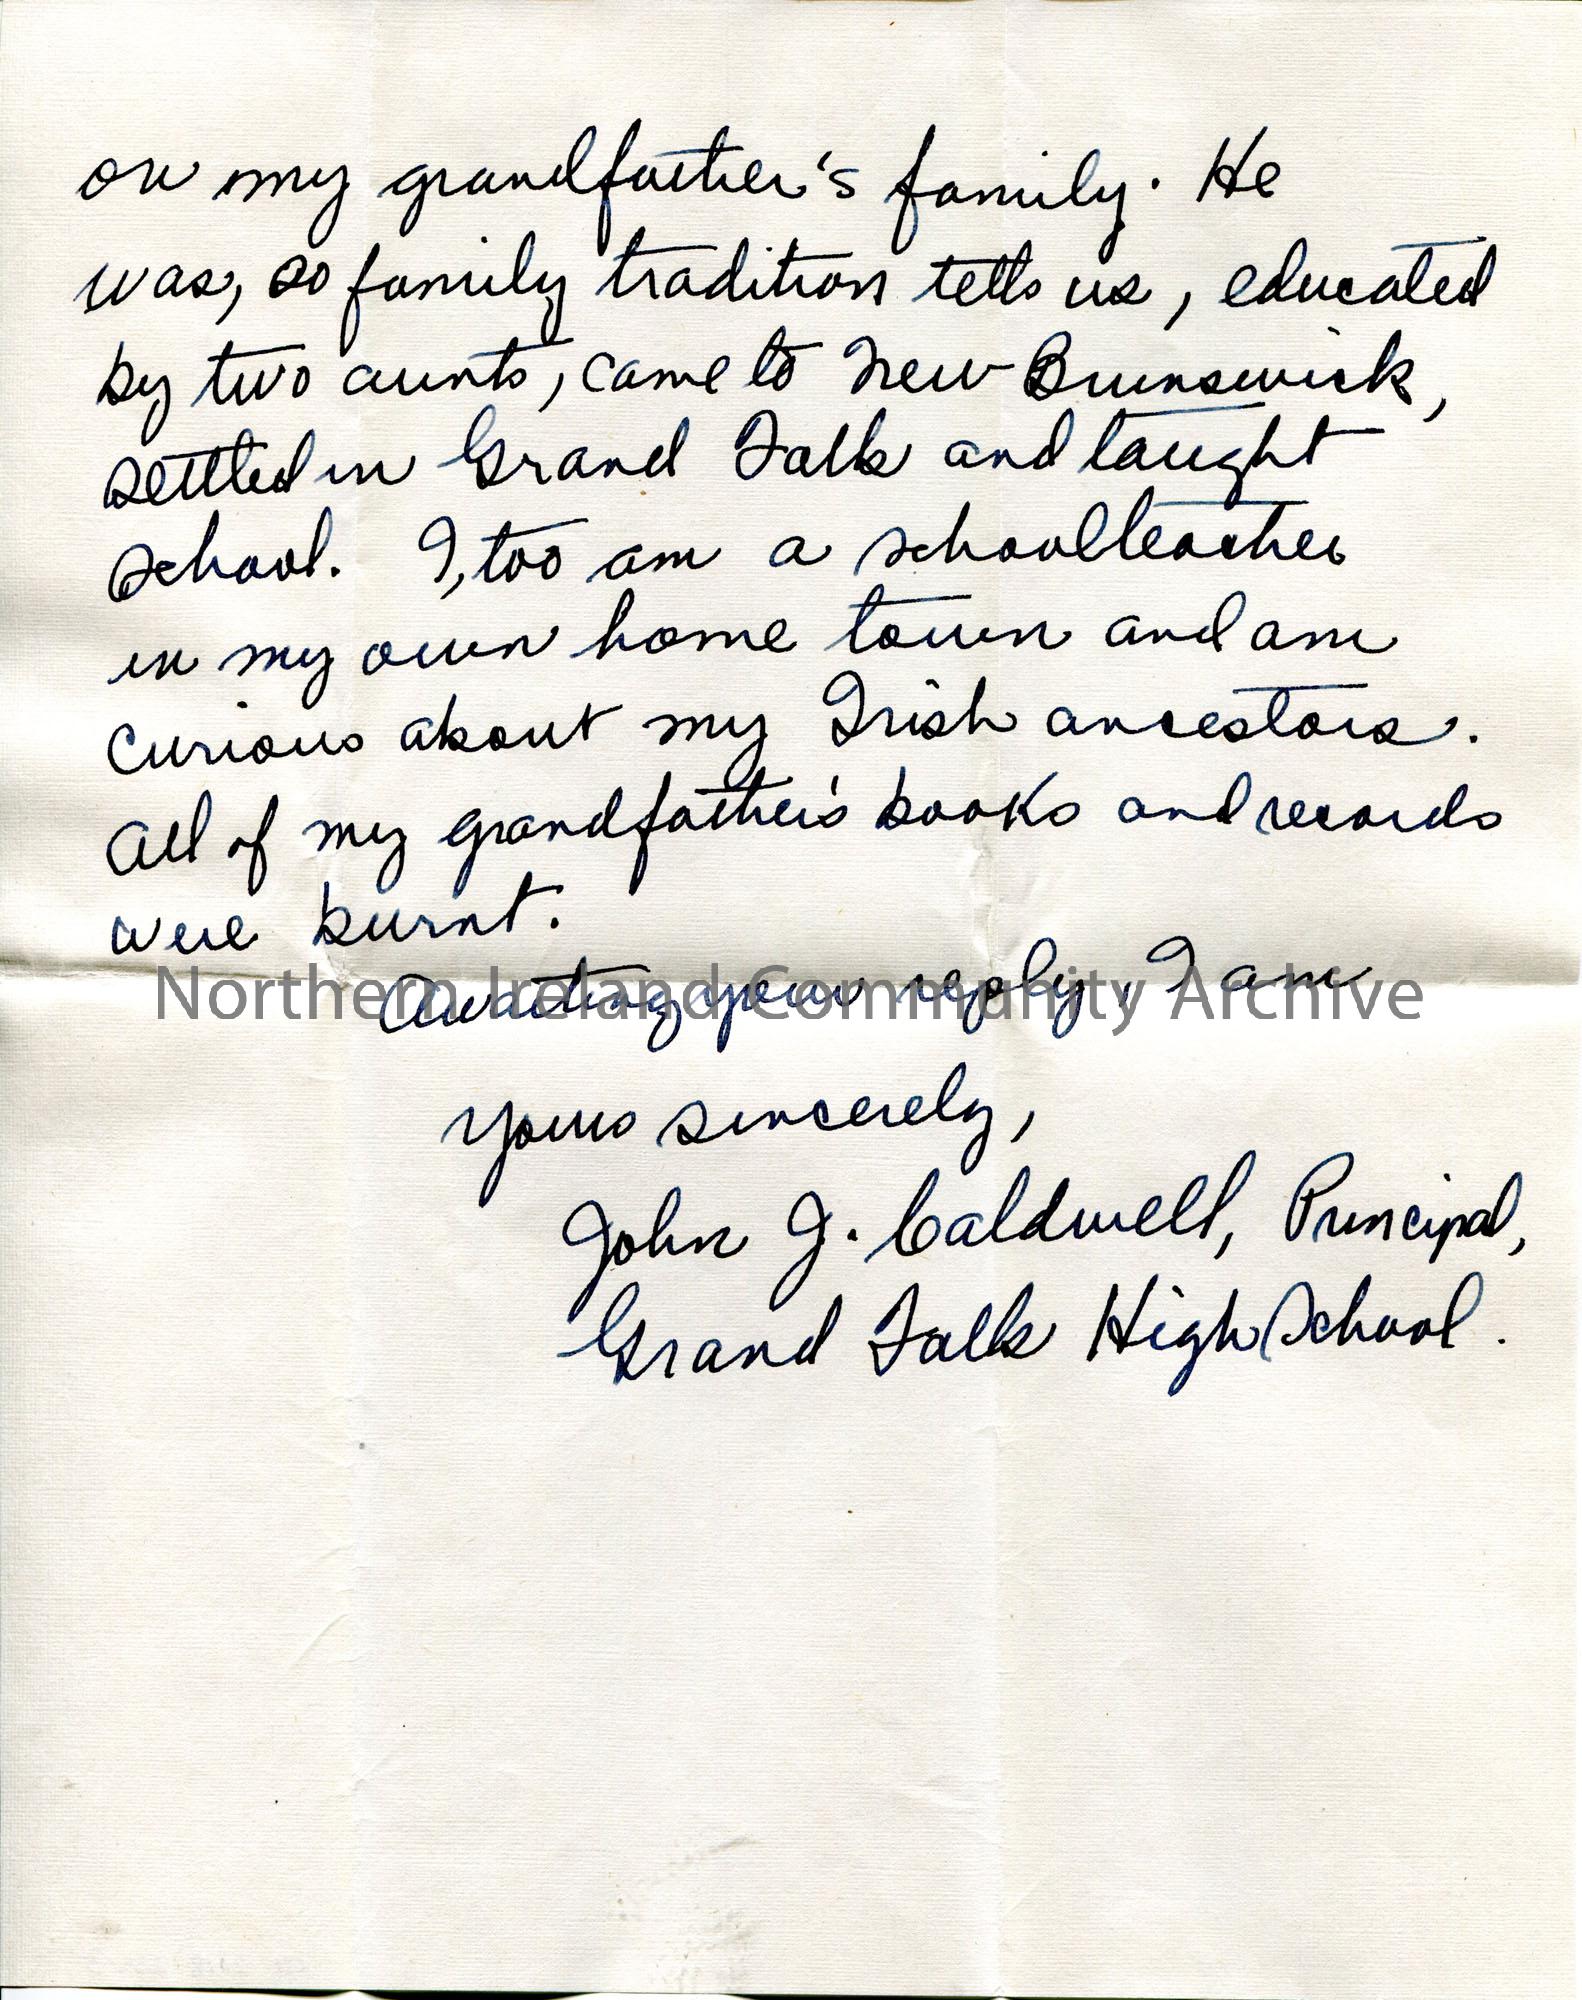 on my grandfather's family. He
was, so family tradition tells us, educated
by two aunts, came to New Brunswick,
settled in Grand Falls and taught
school. I, too am a schoolteacher
in my own home town and am
curious about my Irish ancestors.
All of my grandfather's books and records
were burnt.
Awaiting your reply, I am
Northern Ireland Community Archive
Yours sincerely,
John J. Caldwell, Principal,
Grand Falls High School.